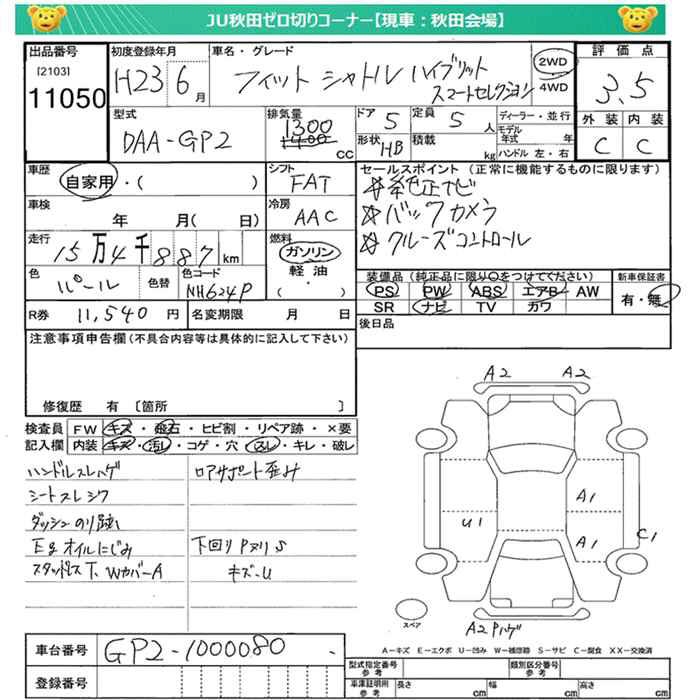 JU秋田ゼロ切りコーナー【現車：秋田会場】
出品番号 初度登録年月 車名・グレード 評価点
[2103] 11050 H23 6月 フィット シャトル ハイブリット スマートセレクション 2WD 4WD 3.5
型式 排気量 ドア 定員 ディーラー・並行 外装 内装
DAA-GP2 1300 1400 cc 5 5人 モデル年式 年 C C
形状 HB 積載 kg ハンドル 左・右
車歴 シフト セールスポイント (正常に機能するものに限ります)
自家用・( ) FAT ☆純正ナビ
車検 冷房 ☆バックカメラ
年 月( 日) AAC ☆クルーズコントロール
走行 燃料
15万4千887km ガソリン
色 色替 色コード 軽油 装備品 (純正品に限り○をつけてください) 新車保証書
パール NH624P ・( ) PS PW ABS エアB AW 有・無
SR ナビ TV カワ
R券 11,540円 名変期限 月 日 後日品
注意事項申告欄 (不具合内容等は具体的に記入して下さい)
修復歴 有 〔箇所 〕
検査員 FW キズ・飛石・ヒビ割・リペア跡・×要
記入欄 内装 キズ・汚レ・コゲ・穴・スレ・キレ・破レ
ハンドルスレハゲ ロアサポート歪み
シートスレシワ
ダッシュのり跡
Egオイルにじみ 下回りPヌリS
スタッドレス下、WカバーA キズ-U
A2 A2
A1
U1 A1 C1
スペア A2 Pハゲ
A－キズ E－エクボ U－凹み W－補修跡 S－サビ C－腐食 XX－交換済
車台番号 GP2-1000080
登録番号
型式指定番号 参考 類別区分番号 参考
車庫証明用 参考 長さ cm 幅 cm 高さ cm